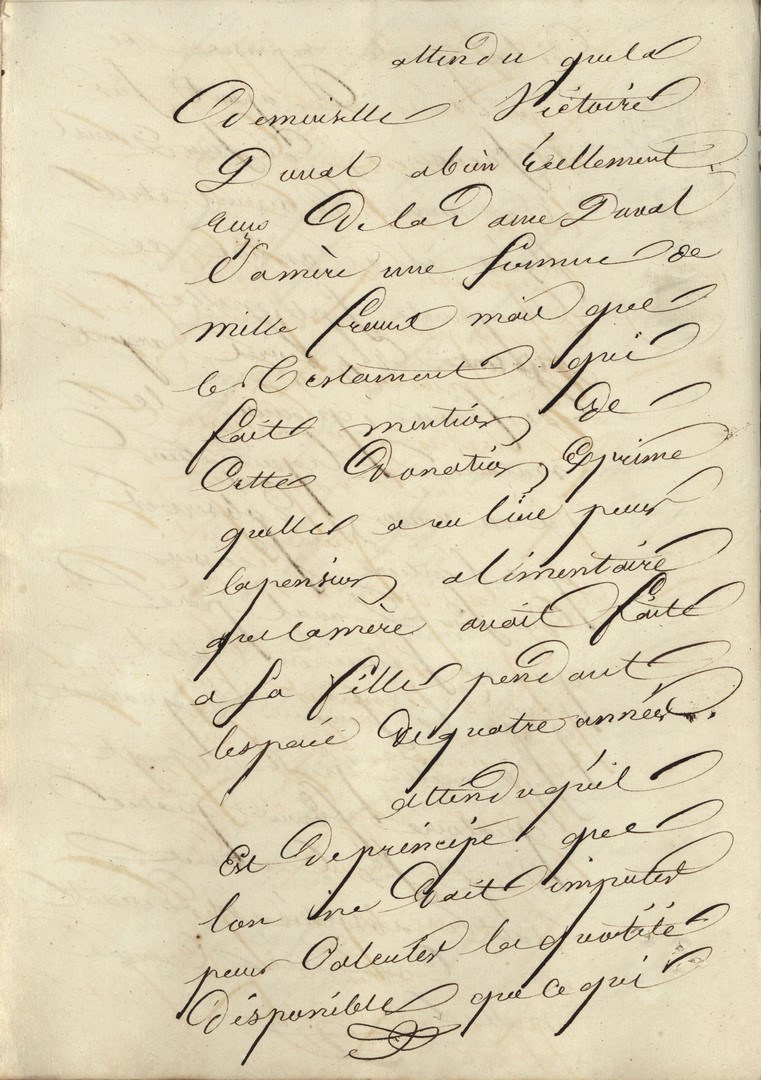 attendu que la
Demoiselle Victoire
Duval a bien réellement
reçu De la Dame Duval
Sa mère une somme de
mille francs mais que
le Testament qui
fait mention de
Cette Donation Exprime
quelle a eu lieu pour
la pension alimentaire
que la mère avait faite
a sa fille pendant
lespace de quatre années.
attendu quil
Est De principe que
lon ne Doit imputer
pour Calculer la quotité
Disponible que ce qui